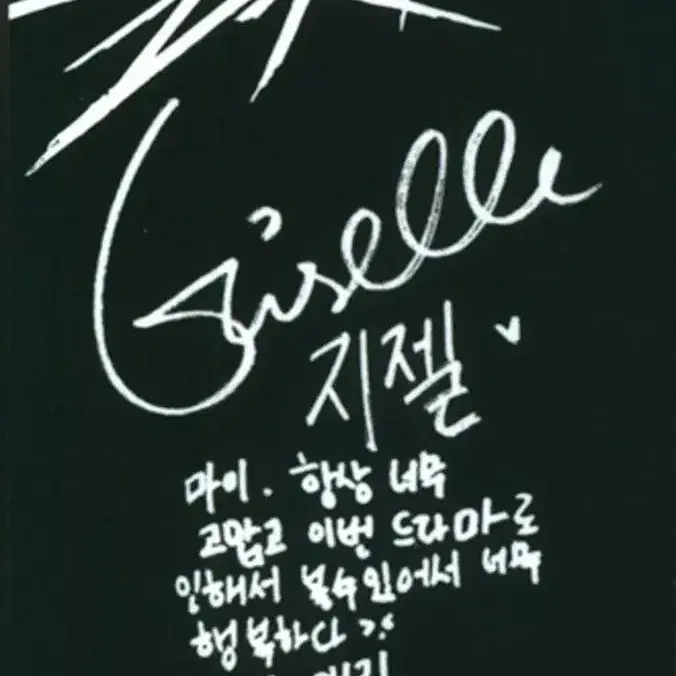 Giselle
지젤
마이. 항상 너무
고맙고 이번 드라마로
인해서 볼수있어서 너무
행복하다